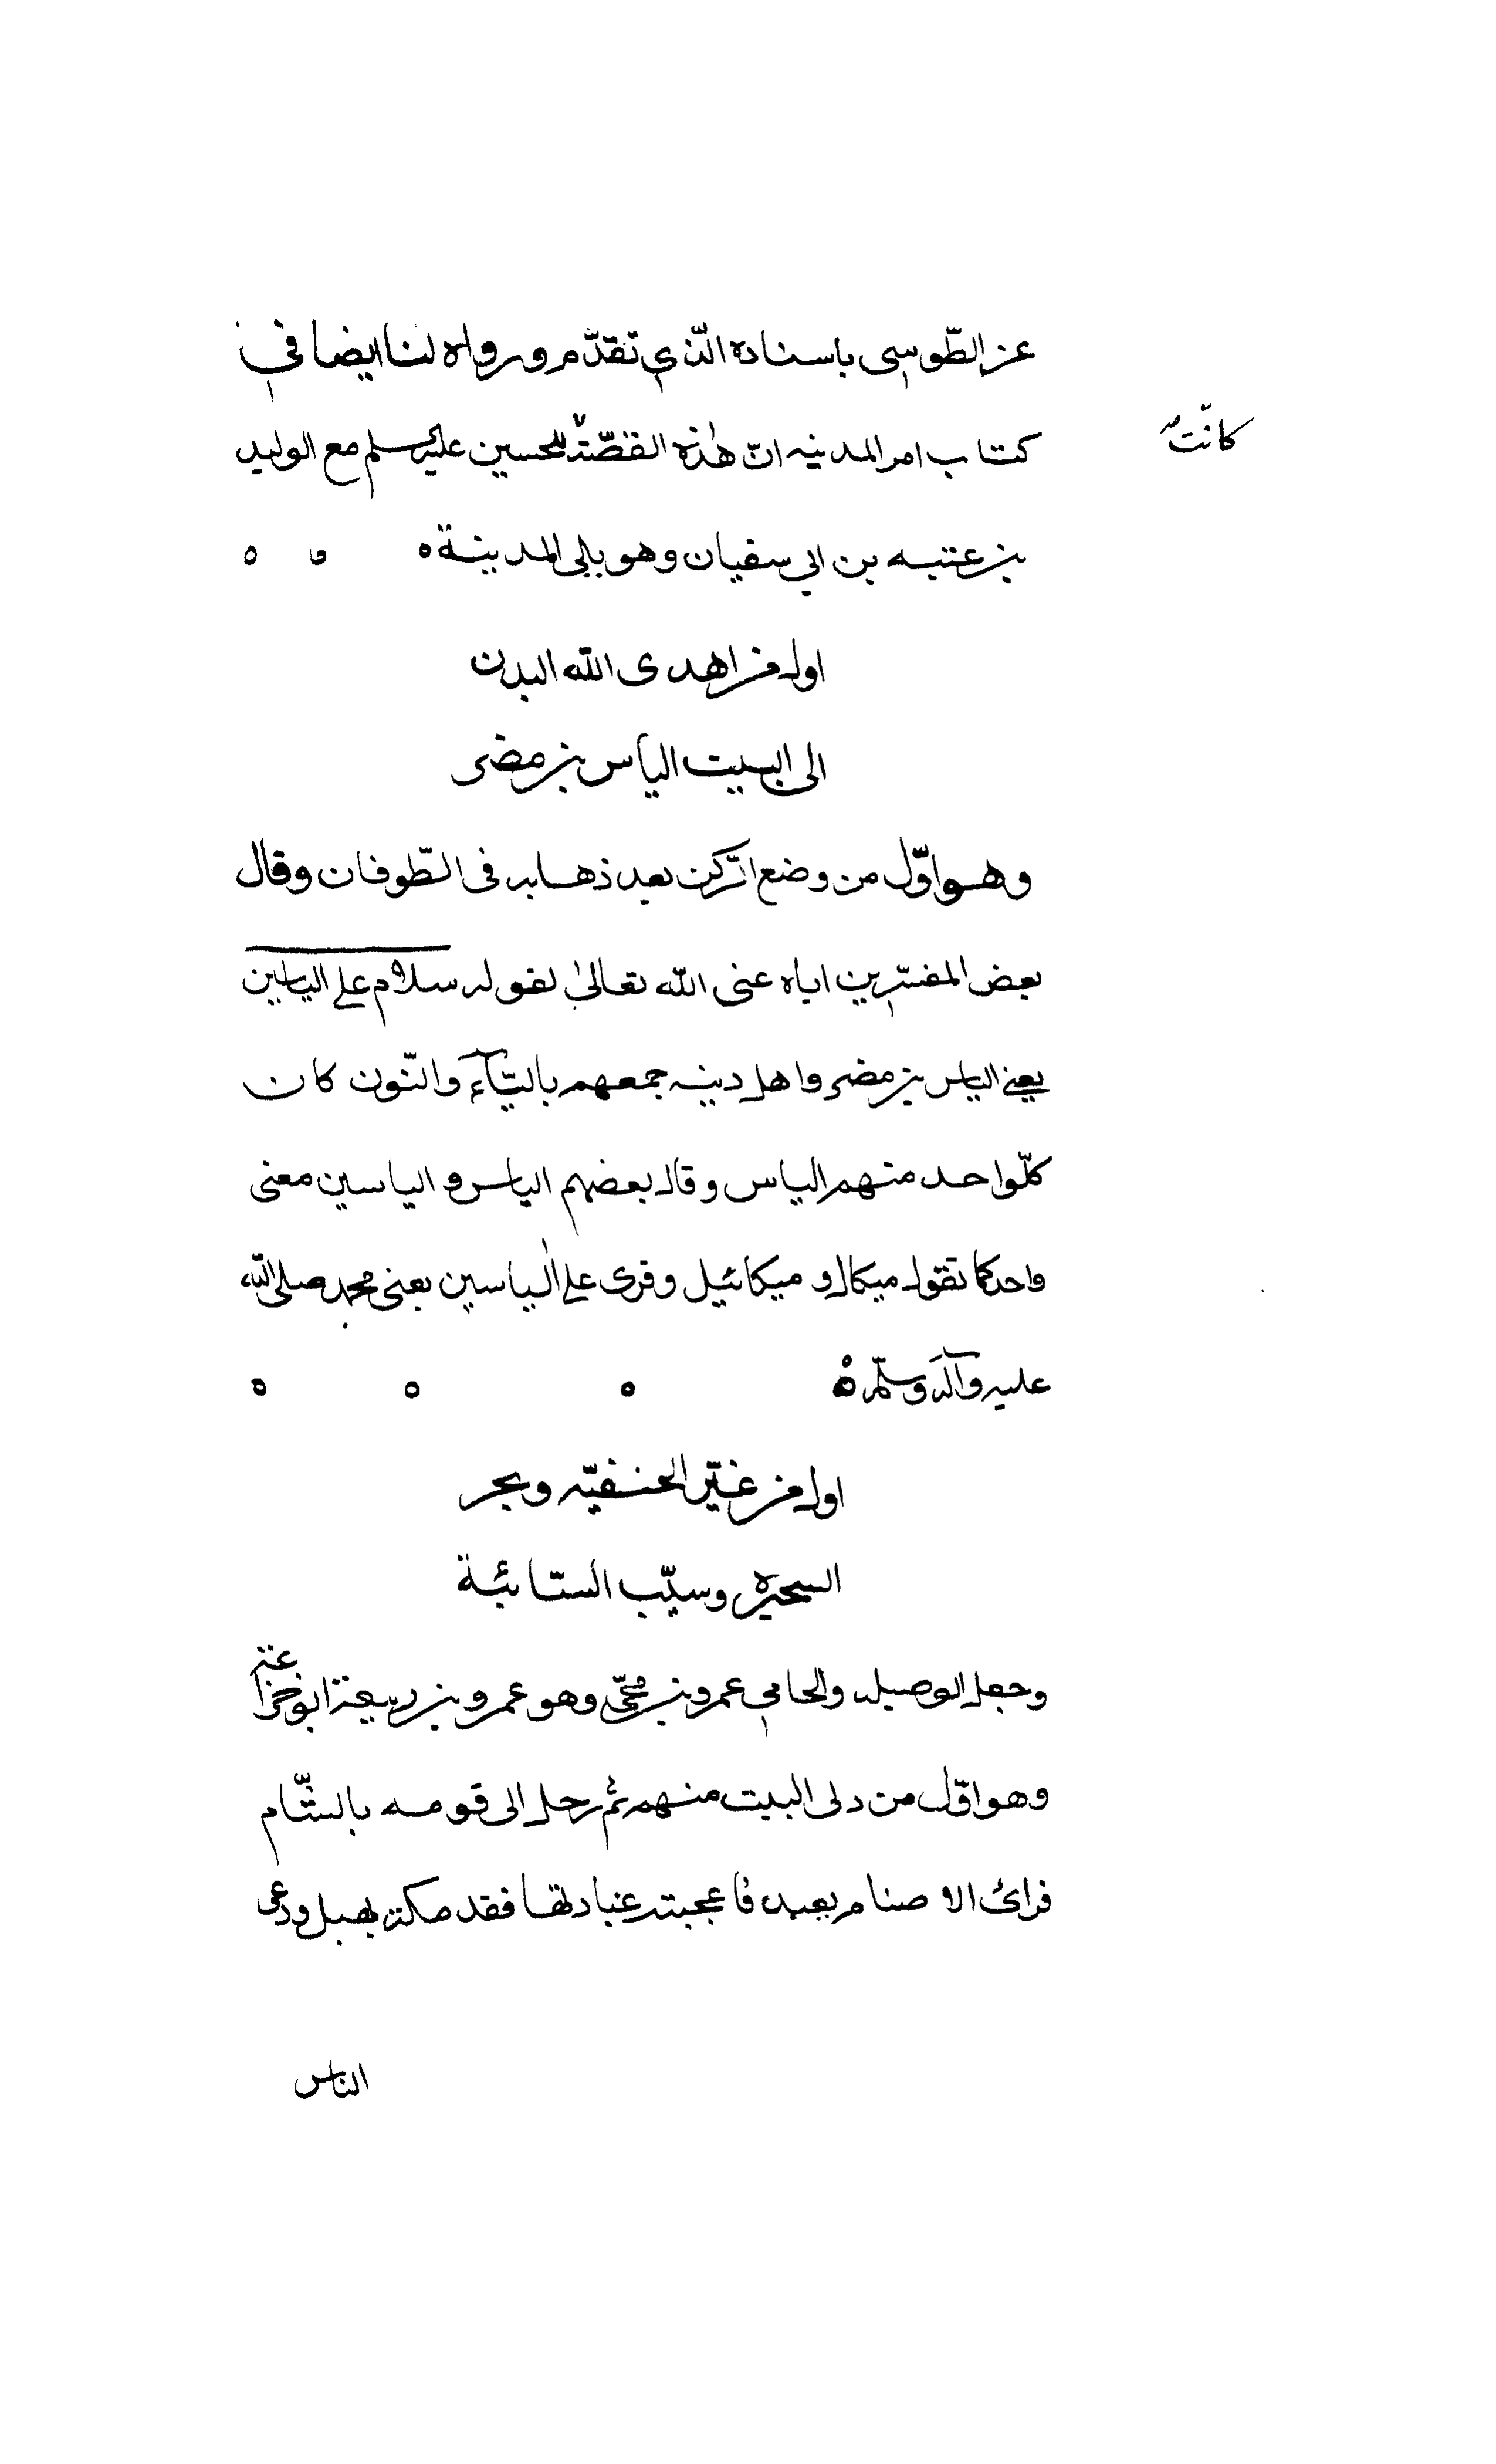 عن الطّوسى باسناده الّذي تقدّم ورواه لنا ايضا في
كتاب امر المدينه انّ هٰذه القصّة للحسين عليه السلم مع الوليد
كانتْ
بن عتبه بن ابي سفيان وهو يلى المدينة ه ه ه
اول من اهدى الله البدن
الى البيت الياس بن مضر
وهو اوّل من وضع الركن بعد ذهابه فى الطّوفان وقال
بعض المفسّرين اياه عنى الله تعالىٰ بقوله سلام على الياسين
يعنى الياس بن مضر واهل دينه جمعهم بالياء والنّون كان
كلّ واحد منهم الياس وقال بعضهم الياس والياسين معنى
واحد كما تقول ميكال وميكائيل وقرى على اٰل ياسين يعنى محمد صلى الله
عليه وآله وسلّم ه ه ه ه
اول من غيّر الحنفيّه وبحر
البحيره وسيّب السّائبة
وجعل الوصيله والحامي عمرو بن لحىّ وهو عمرو بن ربيعة ابو خزاعة
وهو اوّل من ولى البيت منهم ثم رحل الى قومه بالشّام
فرائ الاصنام يعبد فاعجبته عبادتها فقدم مكة بهبل ودعى
الناس